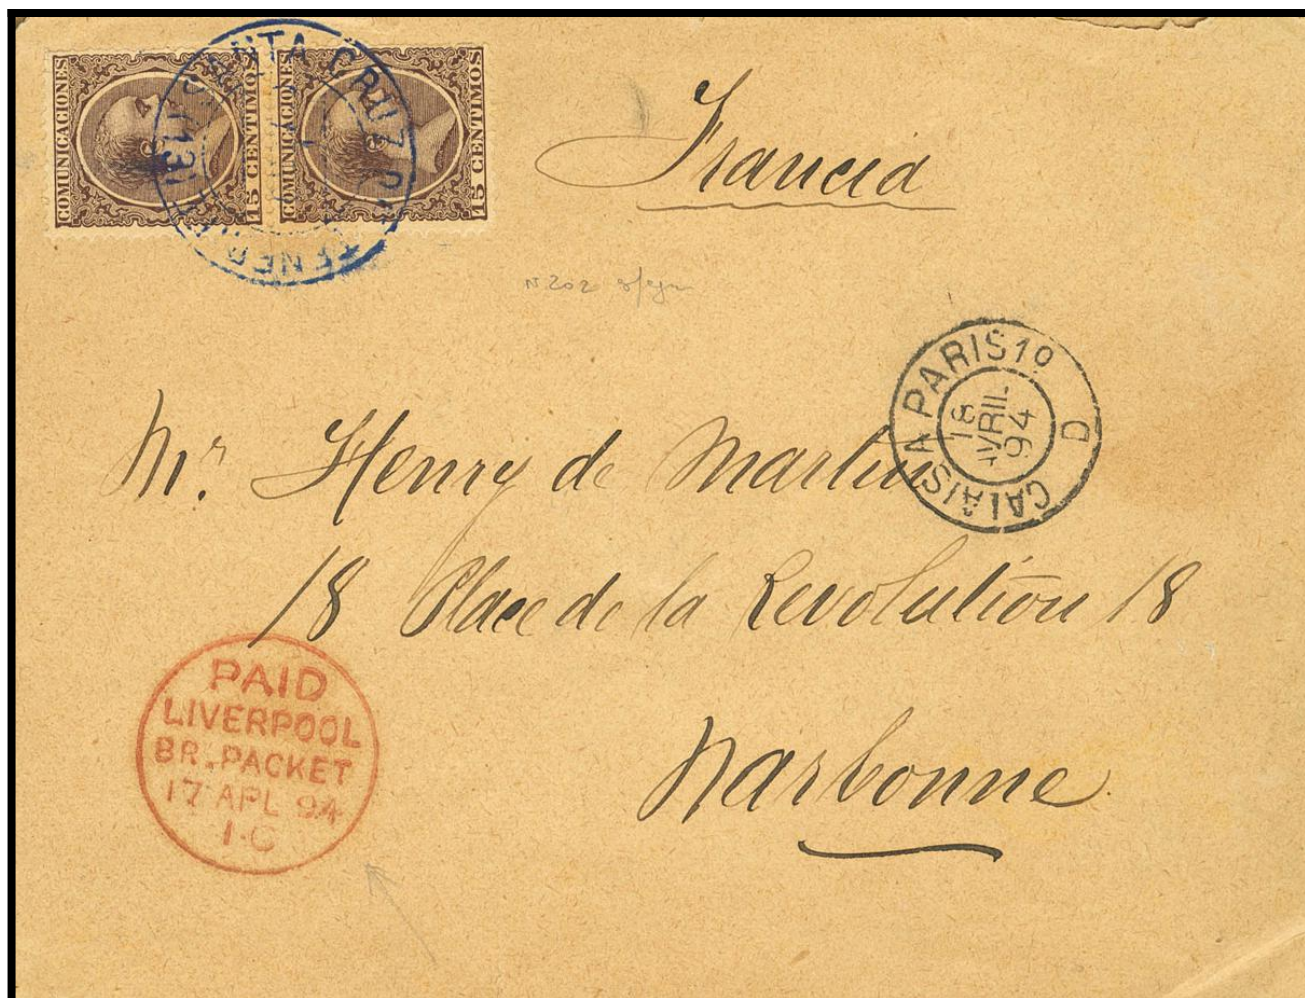 COMUNICACIONES
15 CENTIMOS
COMUNICACIONES
15 CENTIMOS
SANTA CRUZ DE TENERIFE
Francia
N 202
CALAIS A PARIS 1º D
18
AVRIL
94
Mr. Henry de Martin
18 Place de la Revolutión 18
PAID
LIVERPOOL
BR. PACKET
17 APL 94
1·C
Narbonne